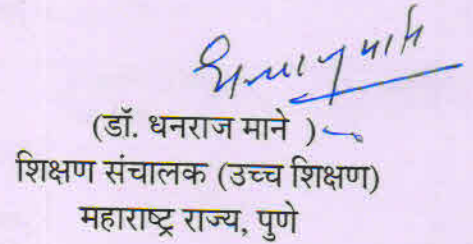 (डॉ. धनराज माने )
शिक्षण संचालक (उच्च शिक्षण)
महाराष्ट्र राज्य, पुणे